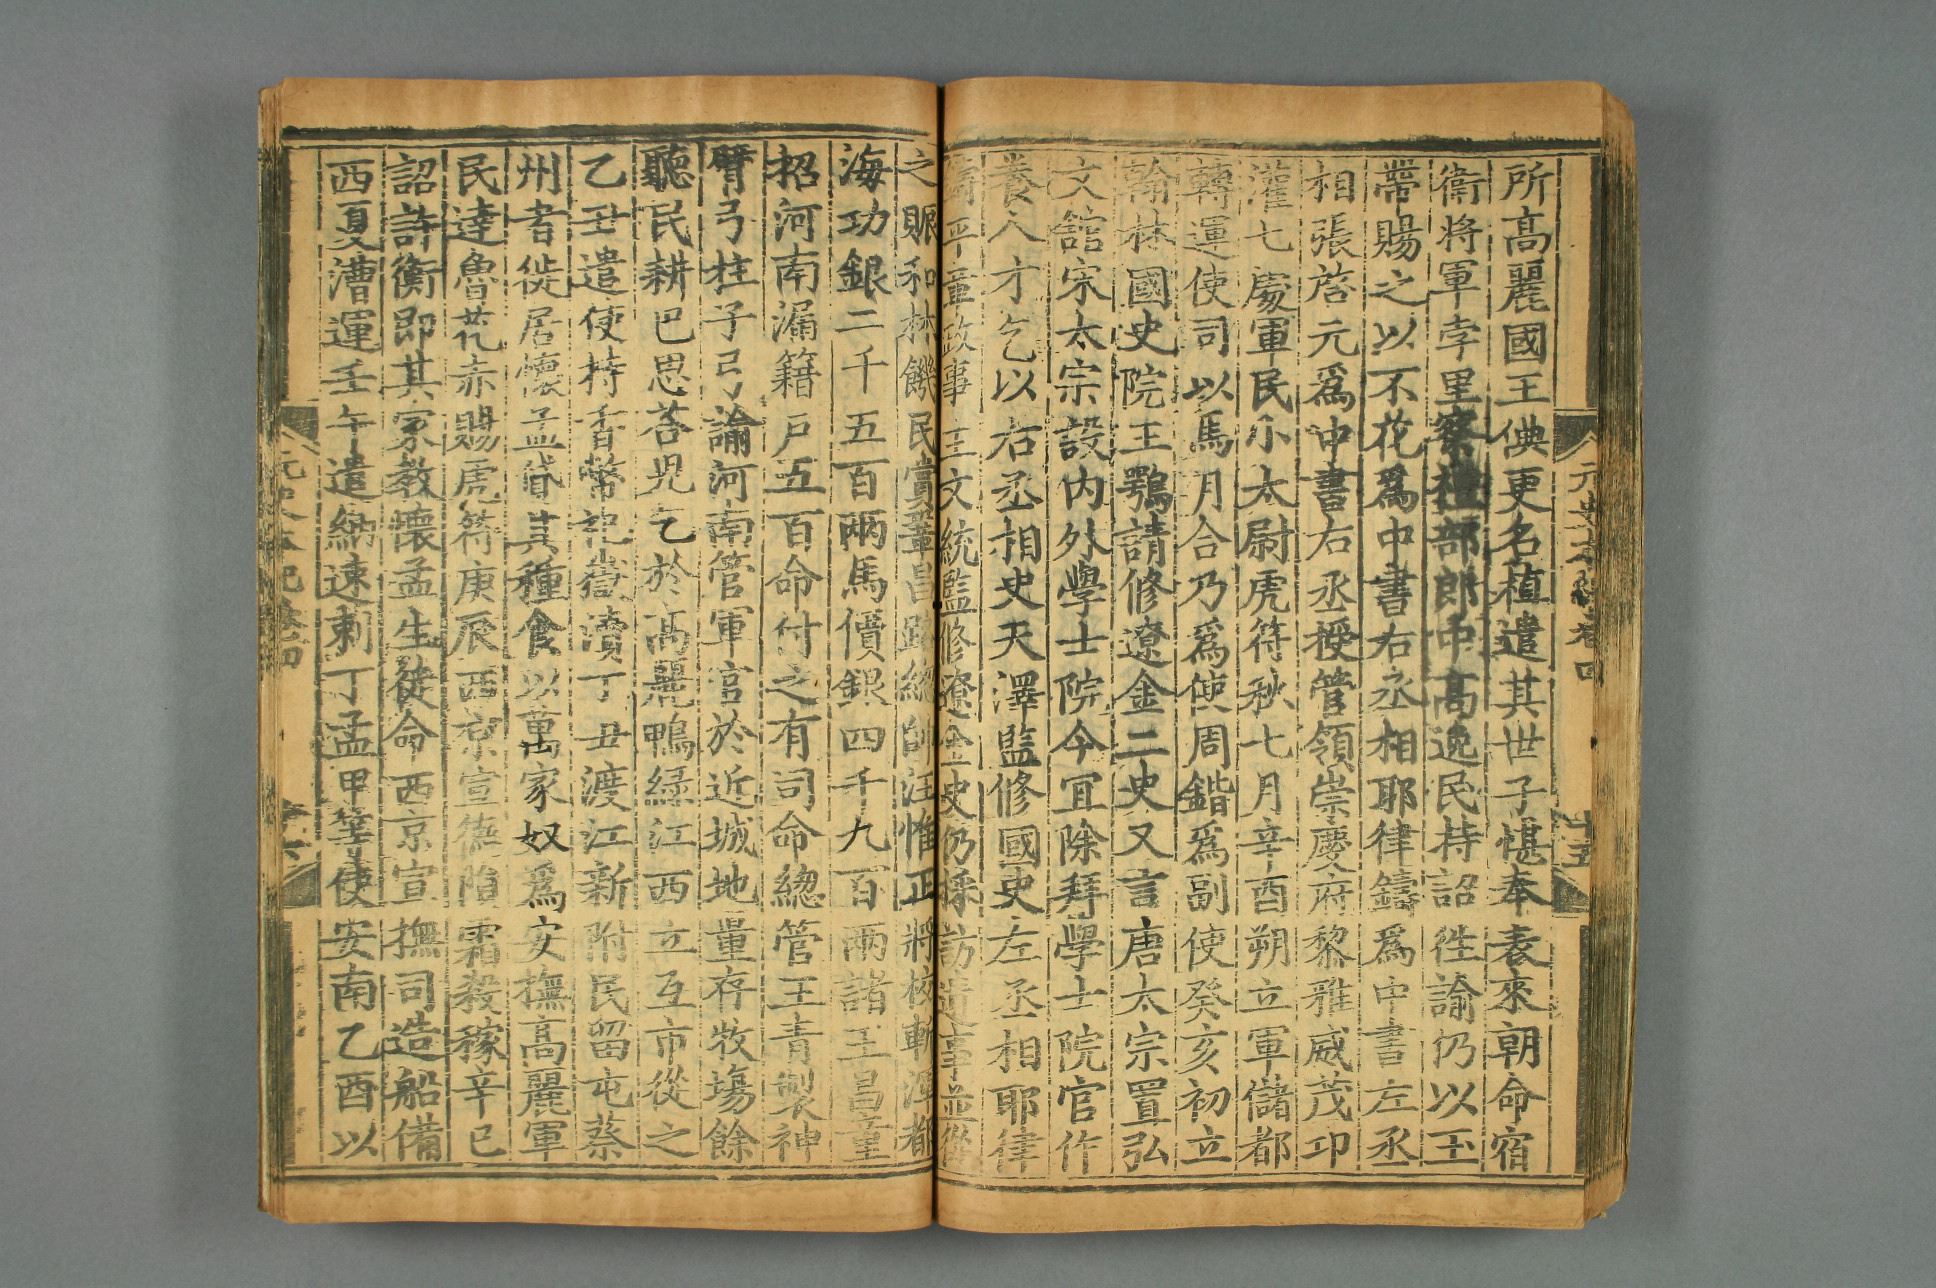 元史本紀卷四
十五
所高麗國王倎更名植遣其世子愖奉表來朝命宿
衞將軍孛里察禮部郎中高逸民持詔徃諭仍以玉
帶賜之以不花爲中書右丞相耶律鑄爲中書左丞
相張啓元爲中書右丞授管領崇慶府黎雅威茂卭
灌七處軍民小太尉虎符秋七月辛酉朔立軍儲都
轉運使司以馬月合乃爲使周鍇爲副使癸亥初立
翰林國史院王鶚請修遼金二史又言唐太宗置弘
文舘宋太宗設内外學士院今宜除拜學士院官作
養人才乞以右丞相史天澤監修國史左丞相耶律
鑄平章政事王文統監修遼金史仍採訪遺事並從
之賑和林饑民賞鞏昌路總帥汪惟正將校斬渾都
海功銀二千五百兩馬價銀四千九百兩諸王昌童
招河南漏籍戸五百命付之有司命總管王青製神
臂弓柱子弓諭河南管軍官於近城地量存牧塲餘
聽民耕巴思荅兒乞於高麗鴨緑江西立互市從之
乙丑遣使持香幣祀嶽瀆丁丑渡江新附民留屯蔡
州者徙居懷孟貸其種食以萬家奴爲安撫高麗軍
民達魯花赤賜虎符庚辰西京宣德隕霜殺稼辛巳
詔許衡即其家教懷孟生徒命西京宣撫司造船備
西夏漕運壬午遣納速剌丁孟甲等使安南乙酉以
元史本紀卷四
十六